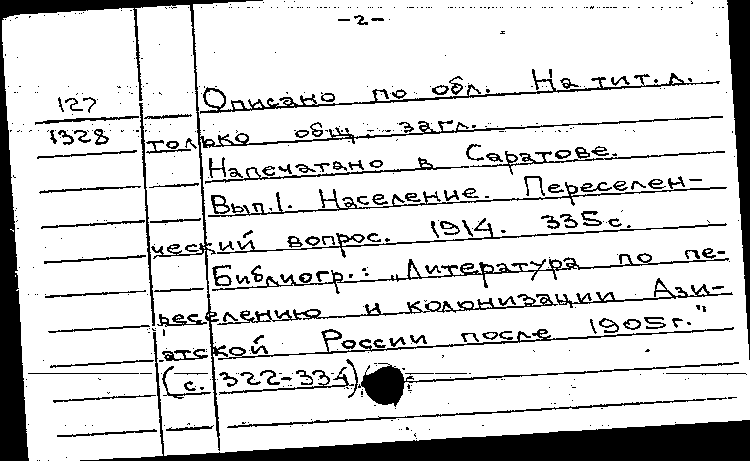 -2-
127
1328
Описано по обл. На тит. л.
только общ. загл.
Напечатано в Саратове.
Вып.1. Население. Переселен-
ческий вопрос. 1914. 335 с.
Библиогр.: „Литература по пе-
реселению и колонизации Ази-
атской России после 1905 г."
(с. 322-334)